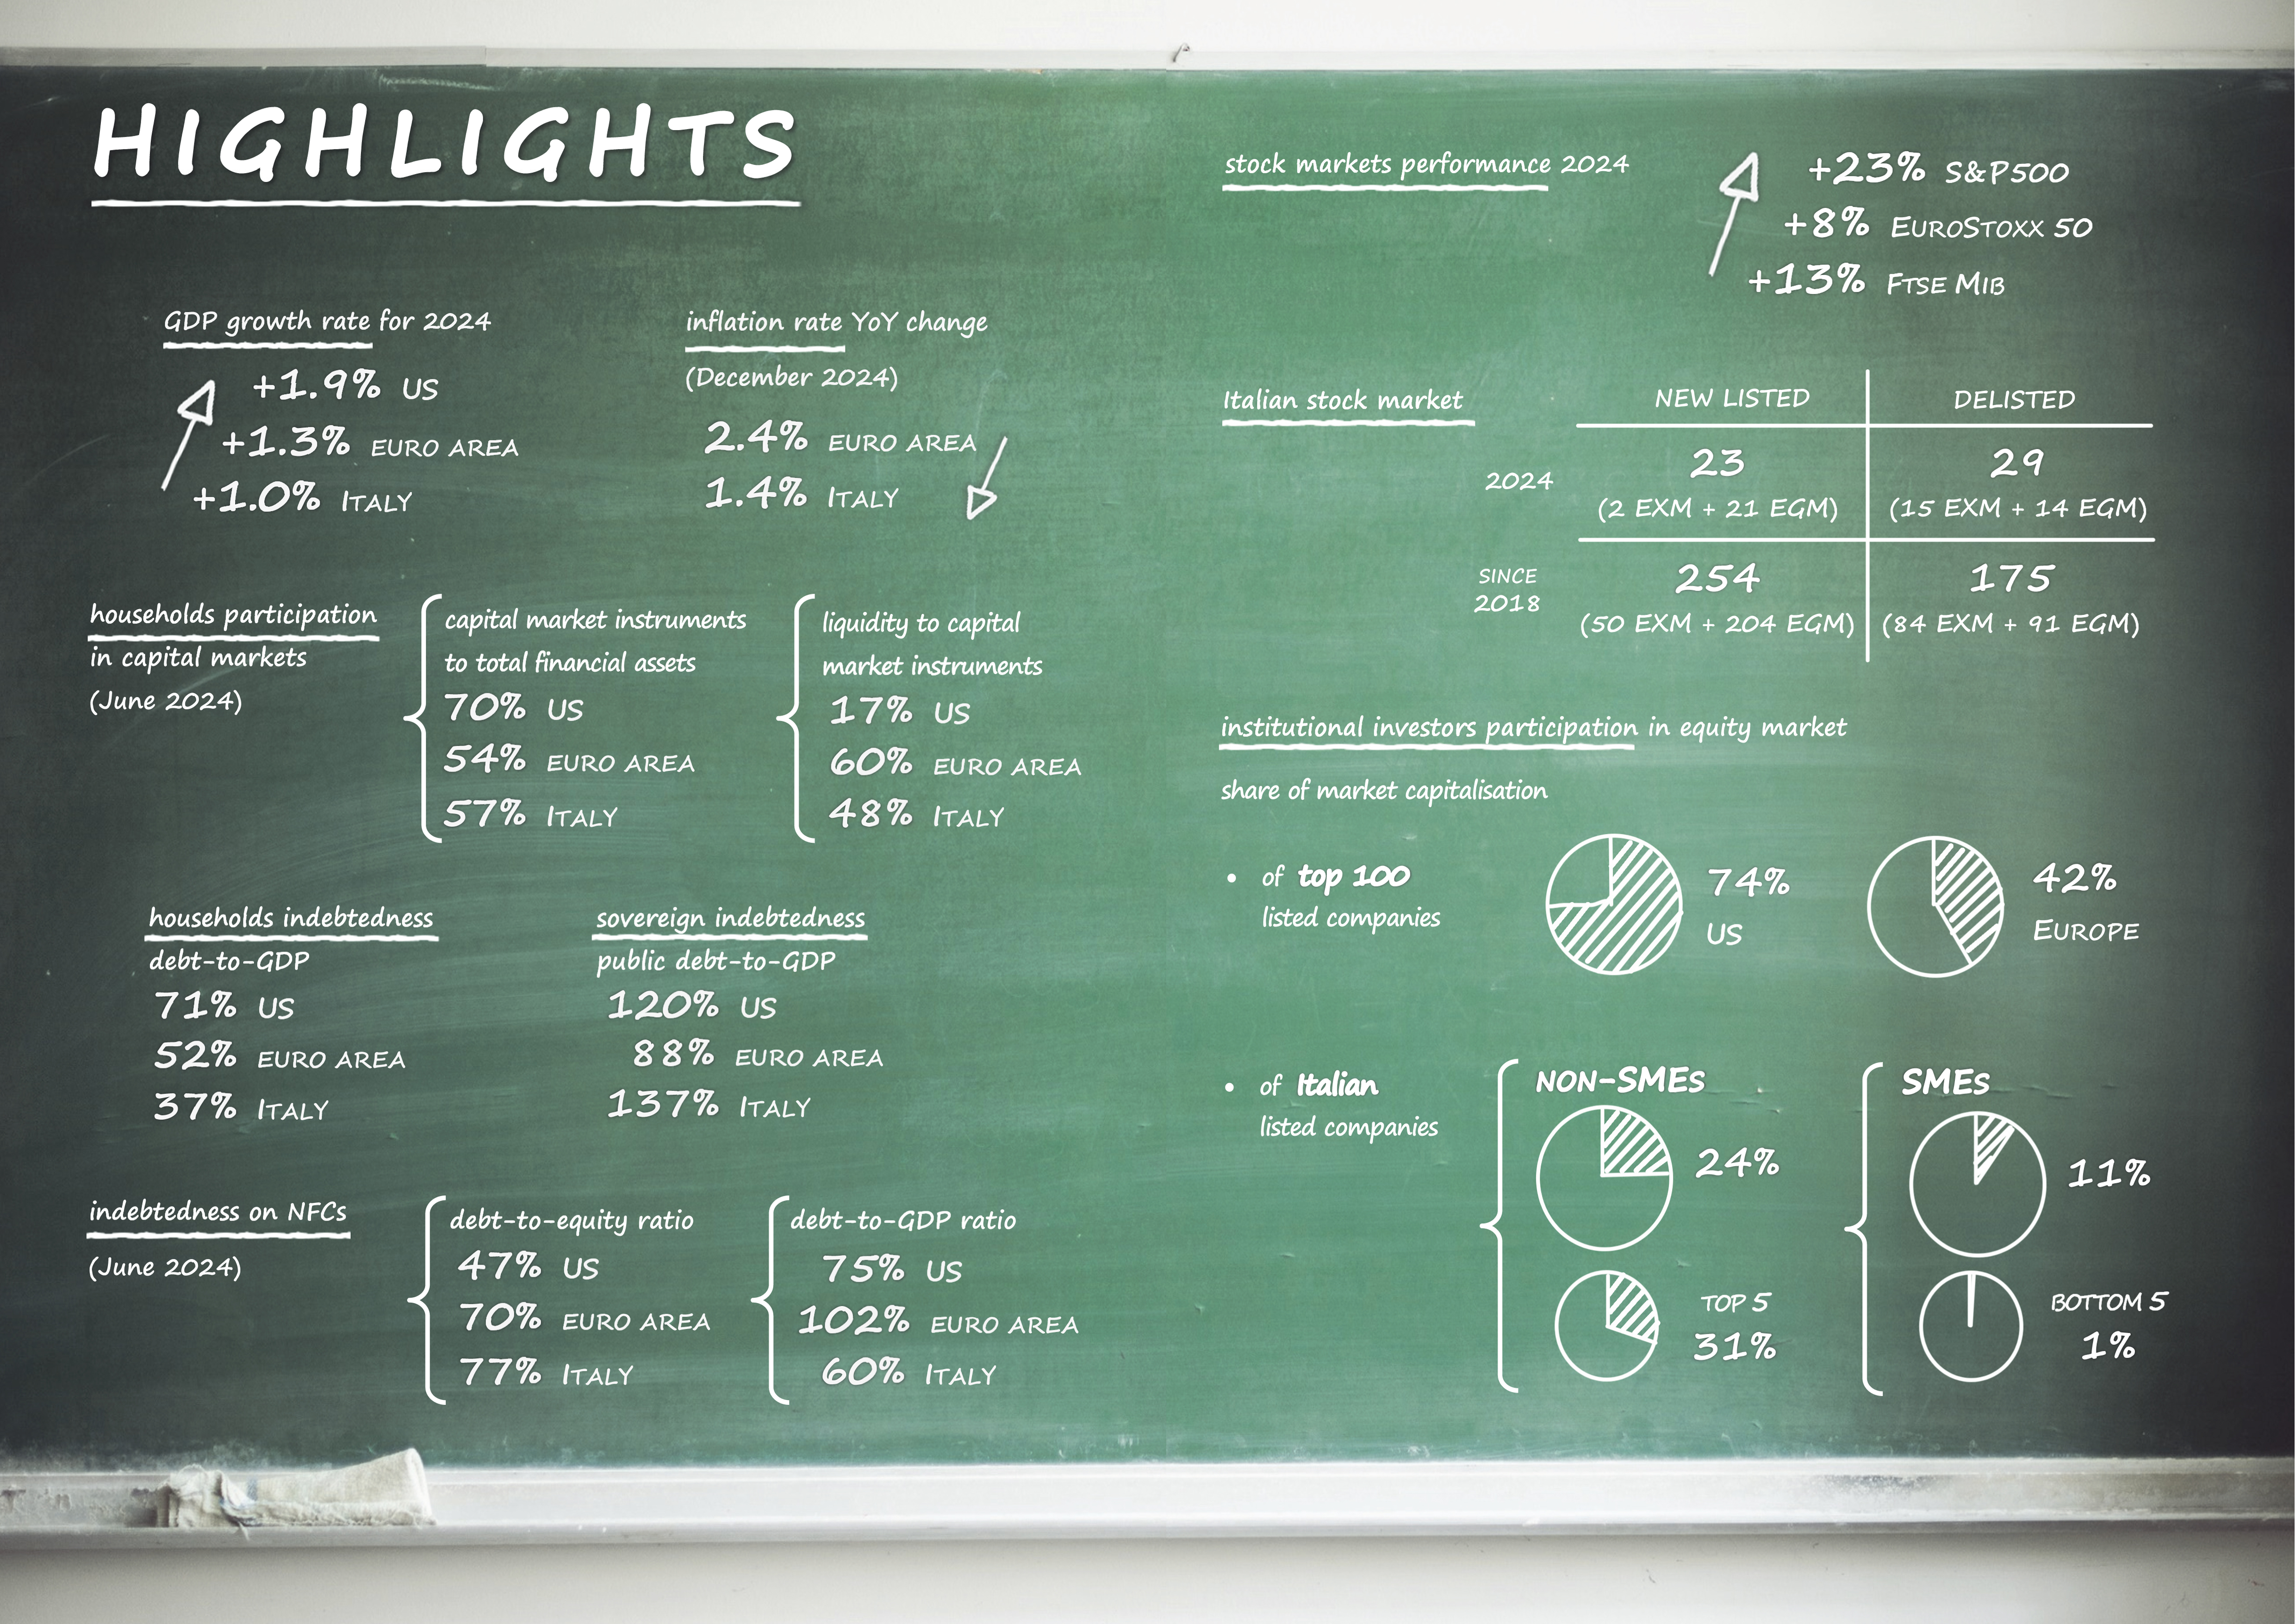 HIGHLIGHTS
GDP growth rate for 2024
+1.9% US
+1.3% EURO AREA
+1.0% ITALY
inflation rate YoY change
(December 2024)
2.4% EURO AREA
1.4% ITALY
households participation
in capital markets
(June 2024)
capital market instruments
to total financial assets
70% US
54% EURO AREA
57% ITALY
liquidity to capital
market instruments
17% US
60% EURO AREA
48% ITALY
households indebtedness
debt-to-GDP
71% US
52% EURO AREA
37% ITALY
sovereign indebtedness
public debt-to-GDP
120% US
88% EURO AREA
137% ITALY
indebtedness on NFCs
(June 2024)
debt-to-equity ratio
47% US
70% EURO AREA
77% ITALY
debt-to-GDP ratio
75% US
102% EURO AREA
60% ITALY
stock markets performance 2024
+23% S&P500
+8% EUROSTOXX 50
+13% FTSE MIB
Italian stock market
NEW LISTED DELISTED
2024
23 29
(2 EXM + 21 EGM) (15 EXM + 14 EGM)
SINCE
2018
254 175
(50 EXM + 204 EGM) (84 EXM + 91 EGM)
institutional investors participation in equity market
share of market capitalisation
• of top 100
listed companies
74%
US
42%
EUROPE
• of Italian
listed companies
NON-SMEs
24%
TOP 5
31%
SMEs
11%
BOTTOM 5
1%